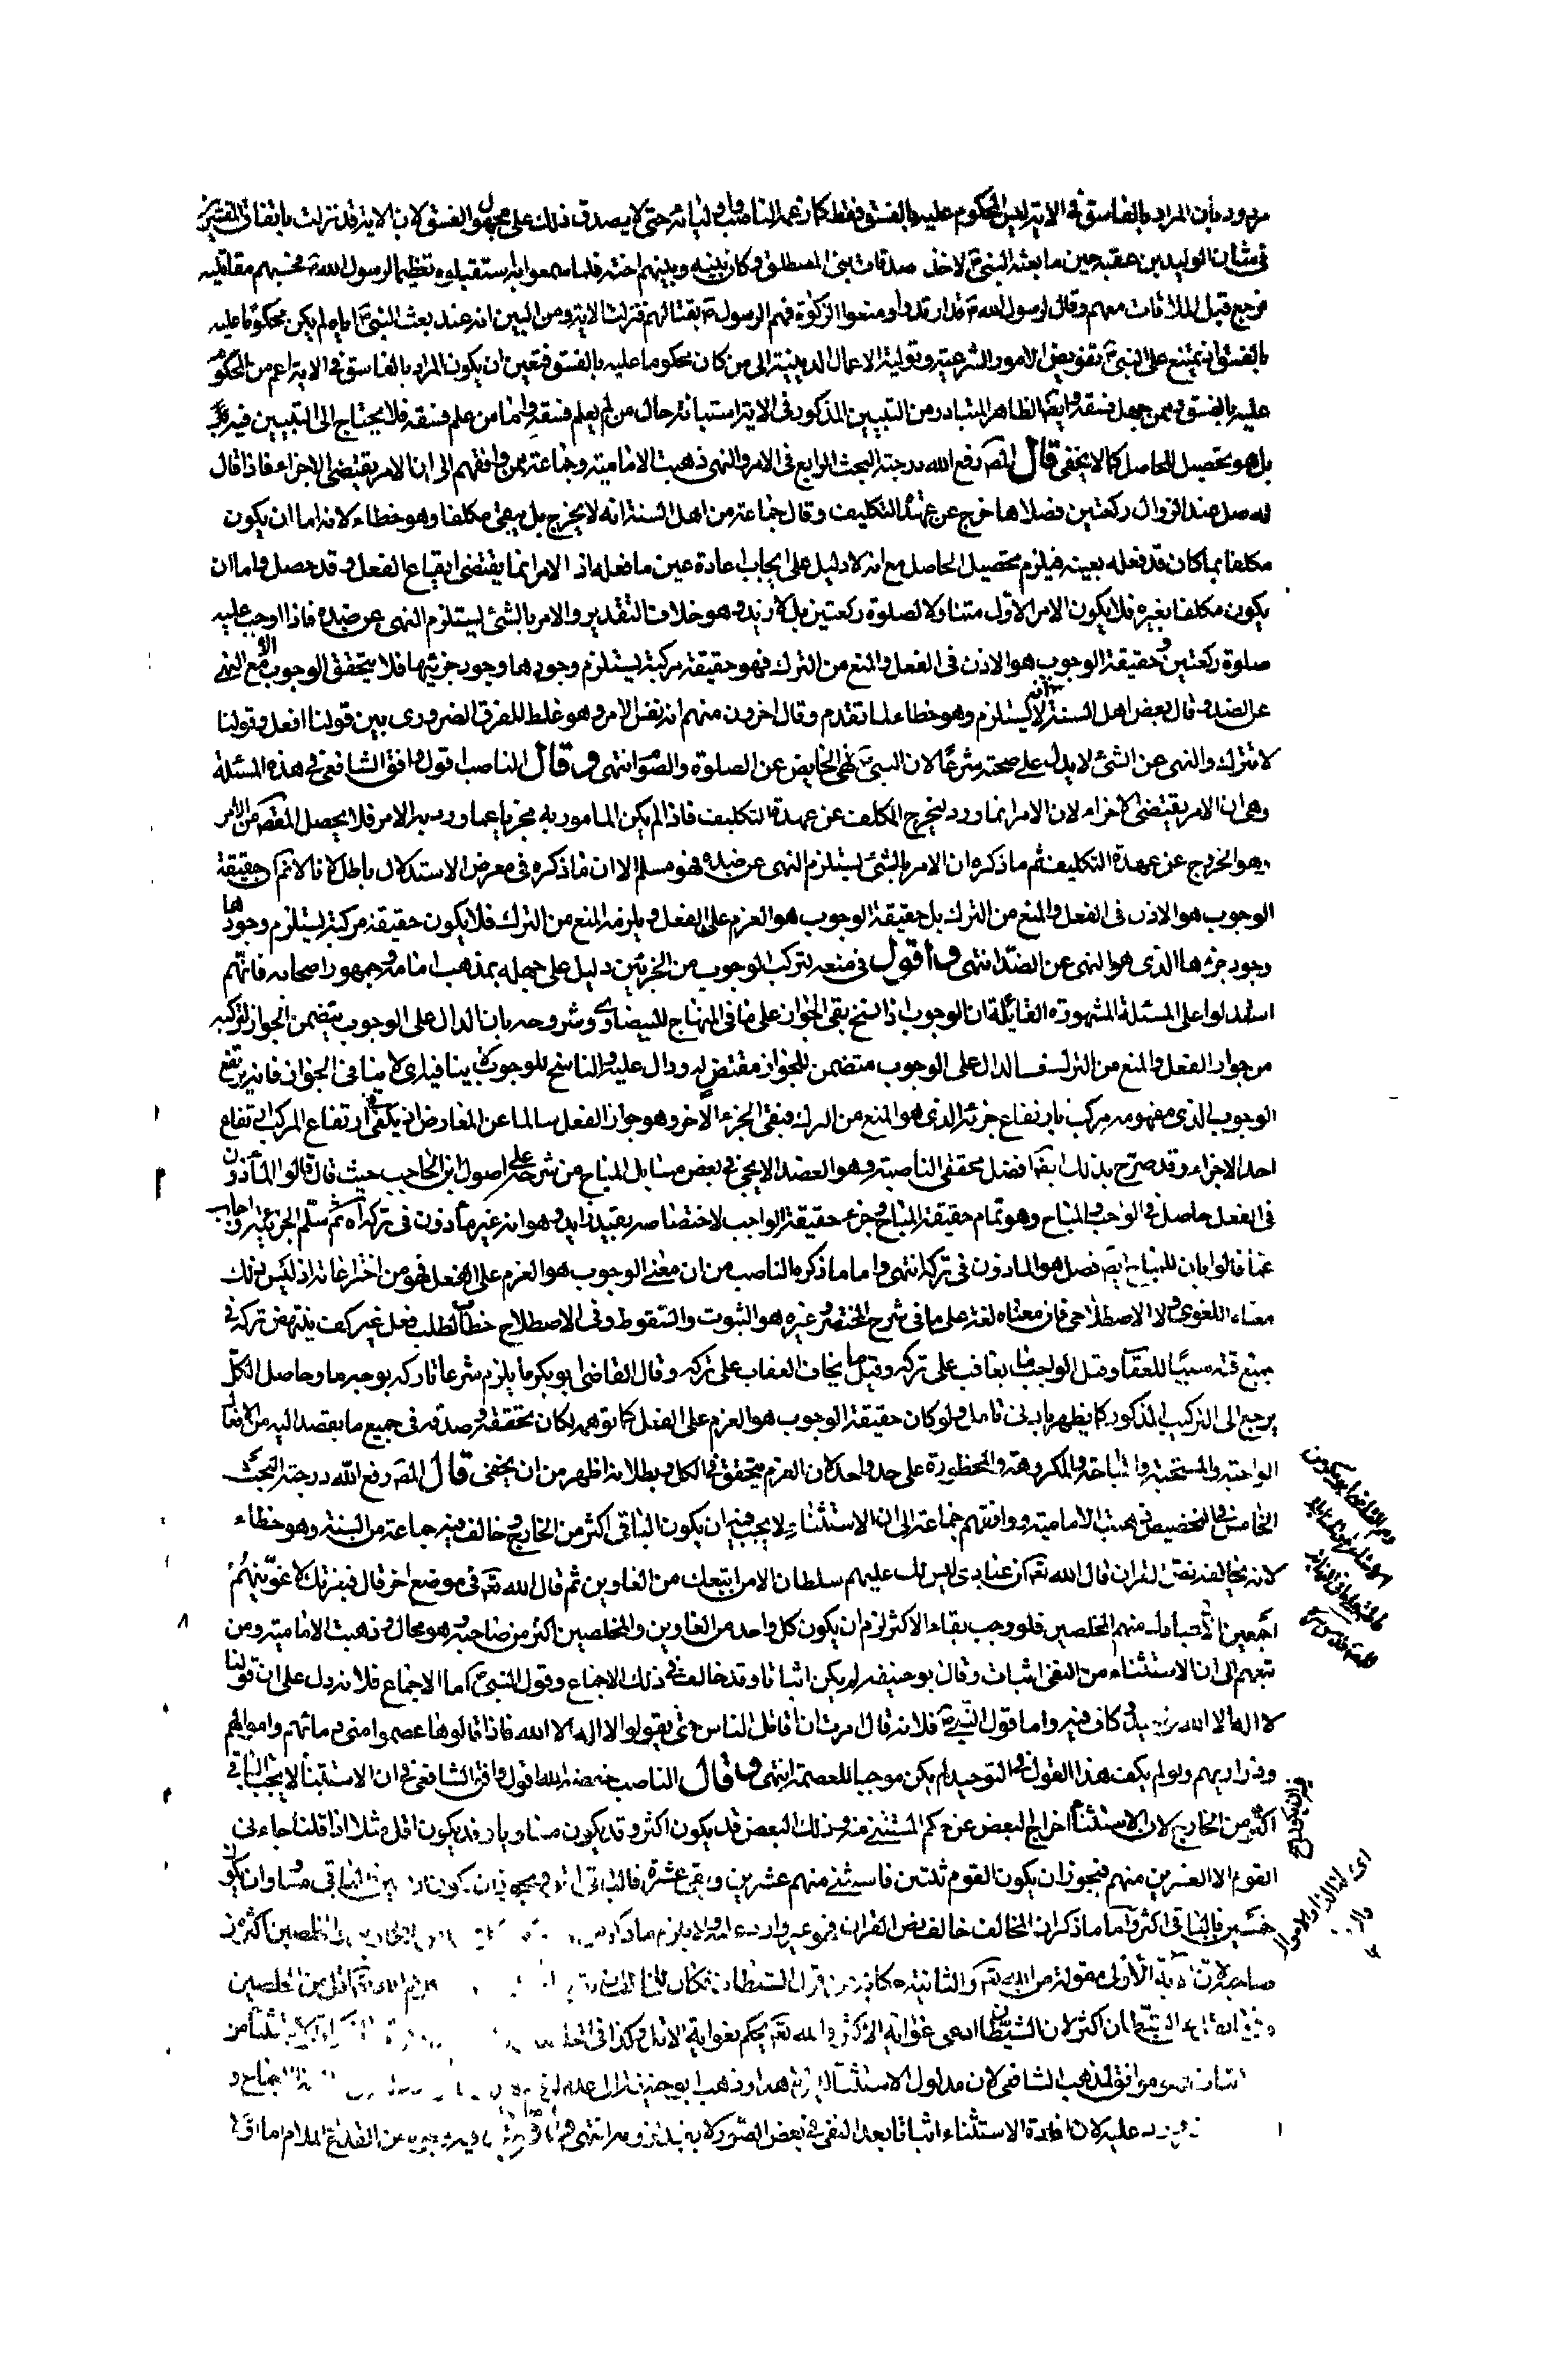 مردود بأن المراد بالفاسق في الاية ليس المحكوم عليه بالفسق فقط كما زعمه الناصب واولياؤه حتى لا يصدق ذلك على مجهول الفسق لان الاية قد نزلت باتفاق المفسرين
في شأن الوليد بن عقبة حين ما بعثه النبي ص لاخذ صدقات بني المصطلق وكان بينه وبينهم احنة فلما سمعوا به استقبلوه تعظيما لرسول الله ص فحسبهم مقاتليه
فرجع قبل الملاقات معهم وقال لرسول الله ص قد ارتدوا ومنعوا الزكوة فهم الرسول ص بقتالهم فنزلت الاية ومن البين انه عند بعث النبي ص اياه لم يكن محكوما عليه
بالفسق اذ يمتنع على النبي ص تفويض الامور الشرعية وتولية الاعمال الدينية الى من كان محكوما عليه بالفسق فتعين ان يكون المراد بالفاسق في الاية اعم من المحكوم
عليه بالفسق وممن جهل فسقه وايضا الظاهر المتبادر من التبيين المذكور في الاية استبانة حال من لم يعلم فسقه واما من علم فسقه فلا يحتاج الى التبيين فيه
بل هو تحصيل الحاصل كما لا يخفى قال المص رفع الله درجته البحث الرابع في الامر والنهي ذهبت الامامية وجماعة ممن وافقهم الى ان الامر يقتضي الاجزاء فاذا قال
له صل عند الزوال ركعتين فصلاها خرج عن عهدة التكليف وقال جماعة من اهل السنة انه لا يخرج بل يبقى مكلفا وهو خطاء لانه اما ان يكون
مكلفا بما كان قد فعله بعينه فيلزم تحصيل الحاصل مع انه لا دليل على ايجاب اعادة عين ما فعله اذ الامر انما يقتضي ايقاع الفعل وقد حصل واما ان
يكون مكلفا بغيره فلا يكون الامر الاول متناولا لصلوة ركعتين بل لازيد وهو خلاف التقدير والامر بالشئ يستلزم النهي عن ضده فاذا اوجب عليه
صلوة ركعتين وحقيقة الوجوب هو الاذن في الفعل والمنع من الترك فهو حقيقة مركبة يستلزم وجودها وجود جزئيها فلا يتحقق الوجوب الا مع النهي
عن الضد وقال بعض اهل السنة انه لا يستلزم وهو خطاء لما تقدم وقال اخرون منهم انه نفس الامر وهو غلط للفرق الضروري بين قولنا افعل وقولنا
لا تترك والنهي عن الشئ لا يدل على صحته شرعا لان النبي ص نهى الحايض عن الصلوة والصوم انتهى وقال الناصب اقول وافق الشافعي في هذه المسئلة
وهي ان الامر يقتضي الاجزاء لان الامر انما ورد ليخرج المكلف عن عهدة التكليف فاذا لم يكن المامور به مجزيا عما ورد به الامر فلا يحصل المقصد من الامر
وهو الخروج عن عهدة التكليف ثم ما ذكره ان الامر بالشئ يستلزم النهي عن ضده فهو مسلم الا ان ما ذكره في معرض الاستدلال باطل لانا لا نم ان حقيقة
الوجوب هو الاذن في الفعل والمنع من الترك بل حقيقة الوجوب هو العزم على الفعل ويلزمه المنع من الترك فلا يكون حقيقة مركبة يستلزم وجودها
وجود جزئها الذي هو النهي عن الضد انتهى واقول في منعه لتركب الوجوب من الجزئين دليل على جهله بمذهب امامه وجمهور اصحابه فانهم
استدلوا على المسئلة المشهورة القائلة ان الوجوب اذا نسخ بقي الجواز على ما في المنهاج للبيضاوي وشروحه بان الدال على الوجوب يتضمن الجواز لتركبه
من جواز الفعل والمنع من الترك فالدال على الوجوب متضمن للجواز مقتض له ودال عليه والناسخ للوجوب لا ينافيه اي لا ينافي الجواز فانه يرتفع
الوجوب الذي مفهومه مركب بارتفاع جزئه الذي هو المنع من الترك فبقي الجزء الاخر وهو جواز الفعل سالما عن المعارض اذ يكفي في ارتفاع المركب ارتفاع
احد الاجزاء وقد صرح بذلك ايضا افضل محققي الناصبة وهو العضد الايجي في بعض مسايل المباح من شرحه على اصول ابن الحاجب حيث قال قالوا المأذون
في الفعل حاصل في الواجب والمباح وهو تمام حقيقة المباح وجزء حقيقة الواجب لاختصاصه بقيد زايد وهو انه غير مأذون في تركه اه ثم سلم الجزئية واجاب
عما قالوا بان للمباح ايض فصل هو المأذون في تركه انتهى واما ما ذكره الناصب من ان معنى الوجوب هو العزم على الفعل فهو من اختراعاته اذ ليس ذلك
معناه اللغوي ولا الاصطلاحي فان معناه لغة على ما في شرح المختصر وغيره هو الثبوت والسقوط وفي الاصطلاح خطاب لطلب فعل غير كف ينتهض تركه في
جميع وقته سببا للعقاب وقيل الواجب ما يعاقب على تركه وقيل ما يخاف العقاب على تركه وقال القاضي ابو بكر ما يلزم شرعا تاركه بوجه ما وحاصل الكل
يرجع الى التركيب المذكور كما يظهر بادنى تامل ولو كان حقيقة الوجوب هو العزم على الفعل كما توهمه لكان تحققه وصدقه في جميع ما يقصد اليه من الافعال
الواجبة والمستحبة والمباحة والمكروهة والمحظورة على حد واحد لان العزم يتحقق في الكل وبطلانه اظهر من ان يخفى قال المص رفع الله درجته البحث
الخامس في التخصيص ذهبت الامامية ووافقهم جماعة الى ان الاستثناء لا يجب فيه ان يكون الباقي اكثر من الخارج وخالف فيه جماعة من السنة وهو خطاء
لانه يخالف نص القران قال الله تعالى ان عبادي ليس لك عليهم سلطان الا من اتبعك من الغاوين ثم قال الله تع في موضع اخر قال فبعزتك لاغوينهم
اجمعين الا عبادك منهم المخلصين فلو وجب بقاء الاكثر لزم ان يكون كل واحد من الغاوين والمخلصين اكثر من صاحبه وهو محال وذهبت الامامية ومن
تبعهم الى ان الاستثناء من النفي اثبات وقال ابو حنيفه لا يكن اثباتا وقد خالف في ذلك الاجماع وقول النبي ص اما الاجماع فلانه دل على ان قولنا
لا اله الا الله توحيد كاف فيه واما قول النبي ص فلانه قال امرت ان اقاتل الناس حتى يقولوا لا اله الا الله فاذا قالوها عصموا مني دمائهم واموالهم
وذراريهم ولو لم يكف هذا القول في التوحيد لم يكن موجبا للعصمة انتهى وقال الناصب خفضه الله اقول وافق الشافعي في ان الاستثناء لا يجب الباقي
اكثر من الخارج لان الاستثناء اخراج البعض عن حكم المستثنى منه وذلك البعض قد يكون اكثر وقد يكون مساويا وقد يكون اقل مثلا اذا قلنا جاءني
القوم الا العشرين منهم فيجوز ان يكون القوم ثلثين فاستثنى منهم عشرين وبقي عشرة فالباقي اقل ويجوز ان يكون اربعين فالباقي مساو وان يكون
خمسين فالباقي اكثر واما ما ذكر ان المخالف خالف نص القران فهو غير وارد
صاحبه لان الاية الاولى مقولة من الله تع والثانية حكاية من قول الشيطان فكان
اكثر لان الشيطان ادعى غواية الاكثر والله تع يحكم بغواية الاقل
موافق لمذهب الشافعي لان مدلول الاستثناء
عليه لان افادة الاستثناء اثباتا بعد النفي في بعض الصور لا يفيد لزومه انتهى